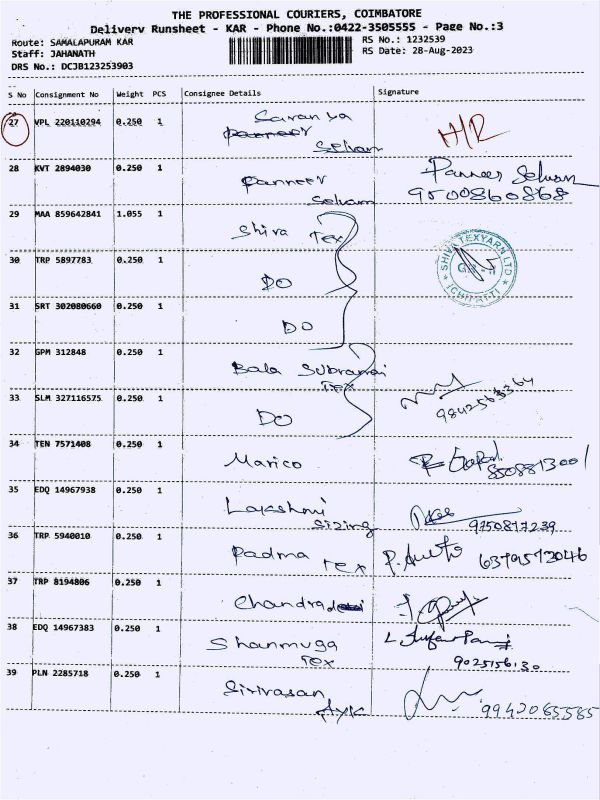 THE PROFESSIONAL COURIERS, COIMBATORE
Delivery Runsheet - KAR - Phone No.:0422-3505555 - Page No.:3
Route: SAMALAPURAM KAR
RS No.: 1232539
Staff: JAHANATH
RS Date: 28-Aug-2023
DRS No.: DCJB123253903
S No Consignment No Weight PCS Consignee Details Signature
27 VPL 220110294 0.250 1 Saranya
Selvam H/R
28 KVT 2894030 0.250 1 Panneer Selvam Panneer Selvam
9500860868
29 MAA 859642841 1.055 1 Shiva Tex
30 TRP 5897783 0.250 1 DO
SHIVA TEXYARN LTD
31 SRT 302080660 0.250 1 DO
32 GPM 312848 0.250 1 Bala Subramani Tex
33 SLM 327116575 0.250 1 DO
34 TEN 7571408 0.250 1 Marico
8508813001
35 EDQ 14967938 0.250 1 Lakshmi Sizing 9750817239
36 TRP 5940010 0.250 1 Padma Tex 6379573046
37 TRP 8194806 0.250 1 Chandra
38 EDQ 14967383 0.250 1 Shanmuga Tex
9025156130
39 PLN 2285718 0.250 1 Sirivasan
9942065585